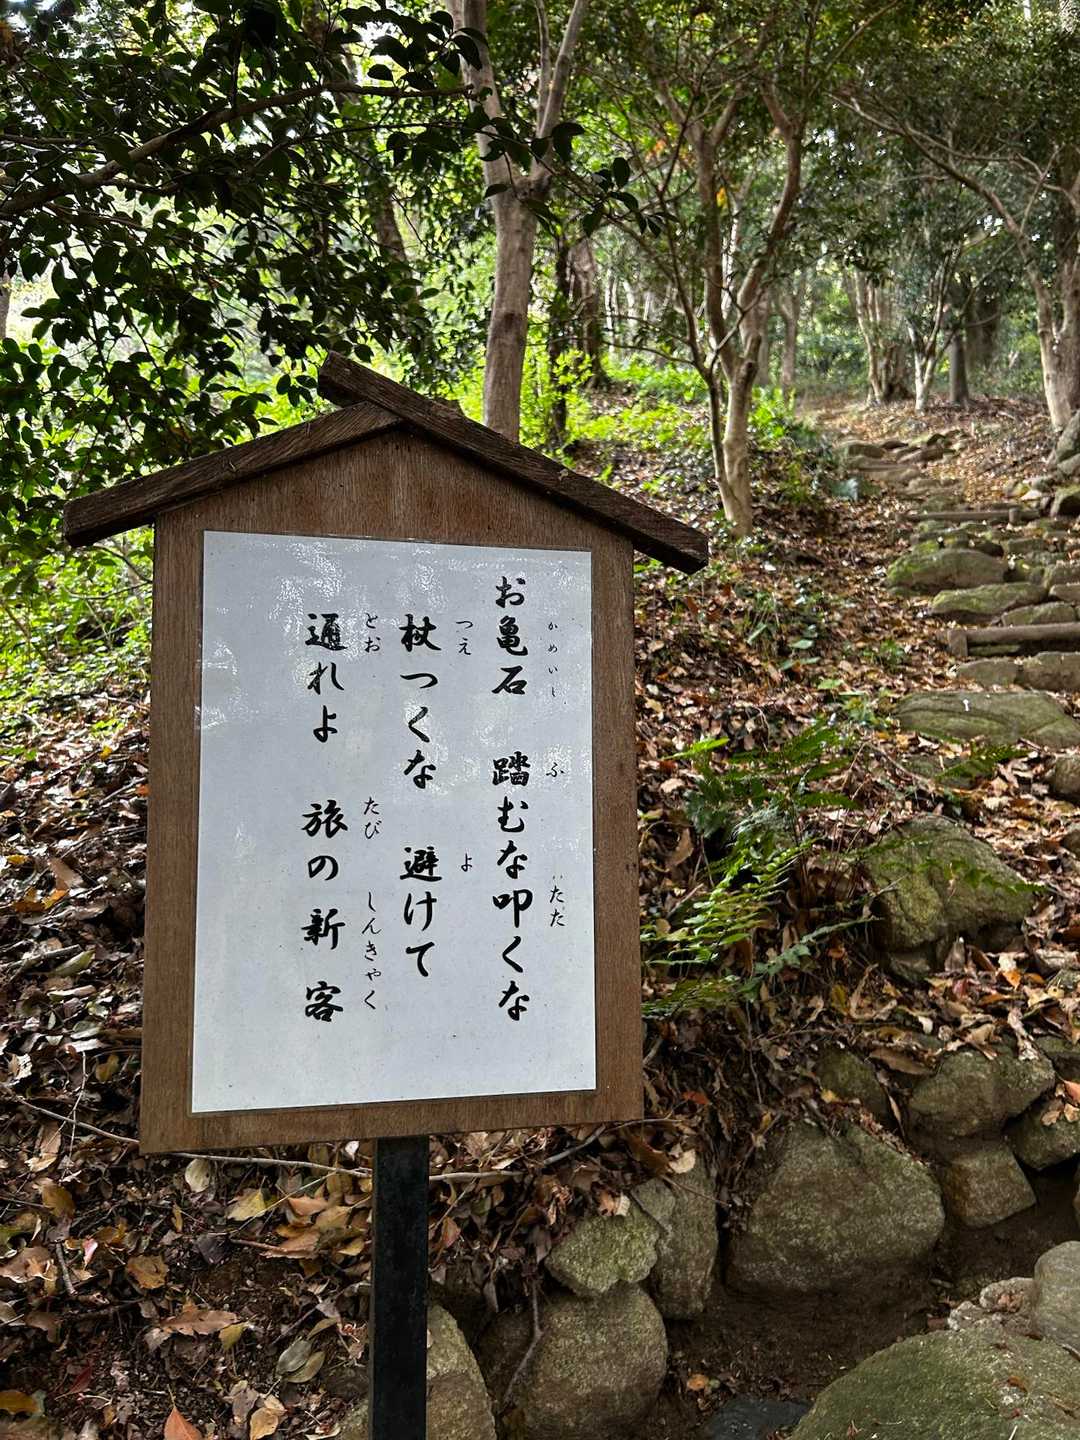 お亀石　踏むな叩くな
かめいし　ふ　たた
杖つくな　避けて
つえ　よ
通れよ　旅の新客
とお　たび　しんきゃく